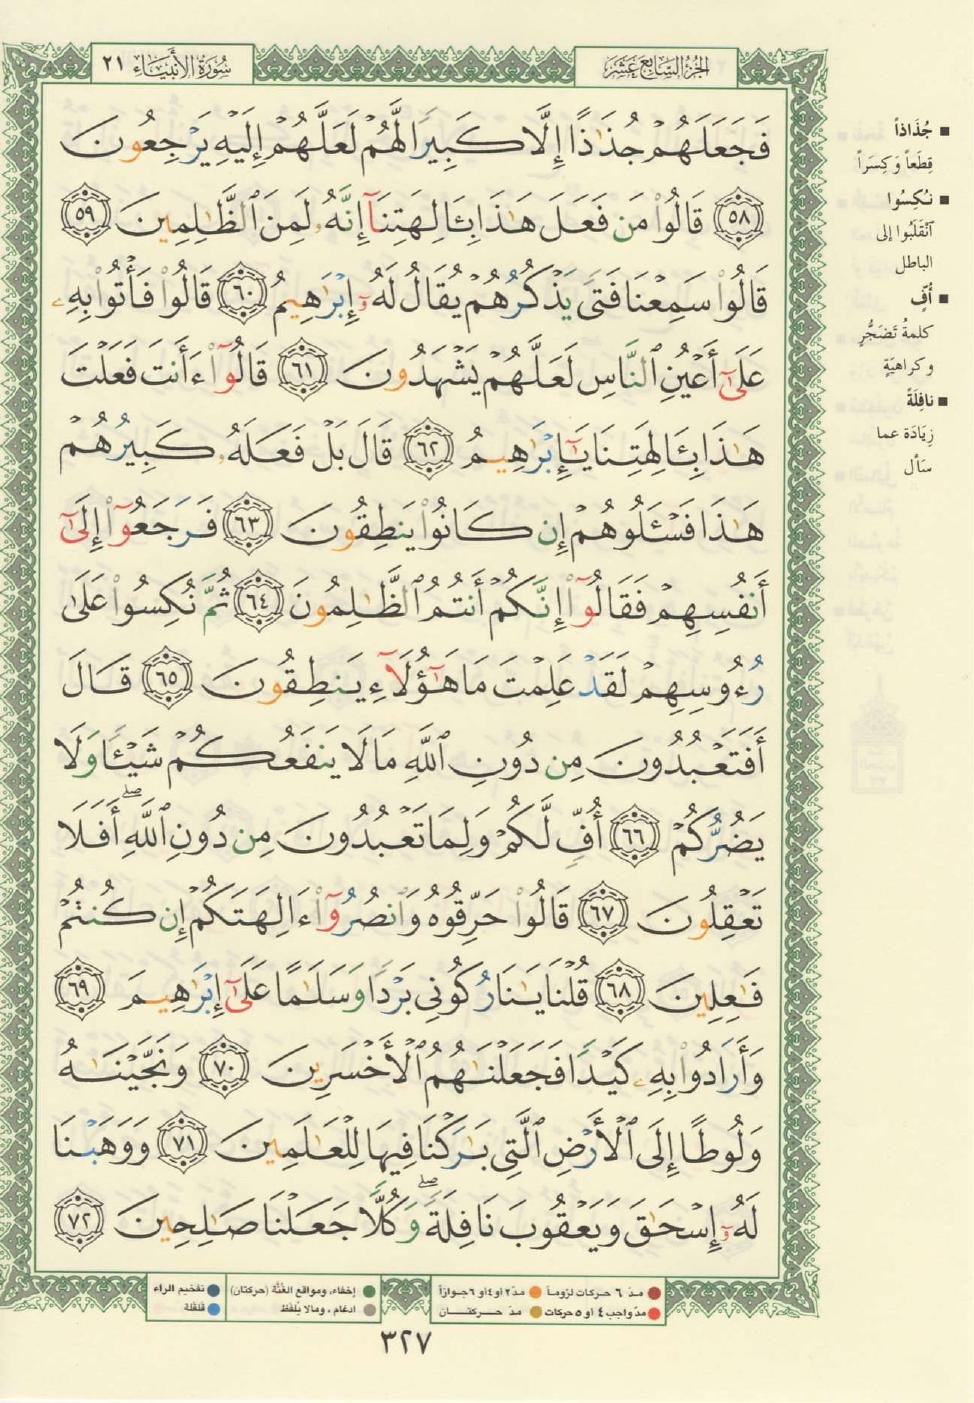 سُورَةُ الأَنبيَاء ٢١
الجُزْءُ السَّابِعُ عَشَرَ
فَجَعَلَهُمْ جُذَٰذًا إِلَّا كَبِيرًا لَّهُمْ لَعَلَّهُمْ إِلَيْهِ يَرْجِعُونَ
٥٨ قَالُوا۟ مَن فَعَلَ هَٰذَا بِـَٔالِهَتِنَآ إِنَّهُۥ لَمِنَ ٱلظَّٰلِمِينَ ٥٩
قَالُوا۟ سَمِعْنَا فَتًى يَذْكُرُهُمْ يُقَالُ لَهُۥٓ إِبْرَٰهِيمُ ٦٠ قَالُوا۟ فَأْتُوا۟ بِهِۦ
عَلَىٰٓ أَعْيُنِ ٱلنَّاسِ لَعَلَّهُمْ يَشْهَدُونَ ٦١ قَالُوٓا۟ ءَأَنتَ فَعَلْتَ
هَٰذَا بِـَٔالِهَتِنَا يَٰٓإِبْرَٰهِيمُ ٦٢ قَالَ بَلْ فَعَلَهُۥ كَبِيرُهُمْ
هَٰذَا فَسْـَٔلُوهُمْ إِن كَانُوا۟ يَنطِقُونَ ٦٣ فَرَجَعُوٓا۟ إِلَىٰٓ
أَنفُسِهِمْ فَقَالُوٓا۟ إِنَّكُمْ أَنتُمُ ٱلظَّٰلِمُونَ ٦٤ ثُمَّ نُكِسُوا۟ عَلَىٰ
رُءُوسِهِمْ لَقَدْ عَلِمْتَ مَا هَٰٓؤُلَآءِ يَنطِقُونَ ٦٥ قَالَ
أَفَتَعْبُدُونَ مِن دُونِ ٱللَّهِ مَا لَا يَنفَعُكُمْ شَيْـًٔا وَلَا
يَضُرُّكُمْ ٦٦ أُفٍّ لَّكُمْ وَلِمَا تَعْبُدُونَ مِن دُونِ ٱللَّهِ ۖ أَفَلَا
تَعْقِلُونَ ٦٧ قَالُوا۟ حَرِّقُوهُ وَٱنصُرُوٓا۟ ءَالِهَتَكُمْ إِن كُنتُمْ
فَٰعِلِينَ ٦٨ قُلْنَا يَٰنَارُ كُونِى بَرْدًا وَسَلَٰمًا عَلَىٰٓ إِبْرَٰهِيمَ ٦٩
وَأَرَادُوا۟ بِهِۦ كَيْدًا فَجَعَلْنَٰهُمُ ٱلْأَخْسَرِينَ ٧٠ وَنَجَّيْنَٰهُ
وَلُوطًا إِلَى ٱلْأَرْضِ ٱلَّتِى بَٰرَكْنَا فِيهَا لِلْعَٰلَمِينَ ٧١ وَوَهَبْنَا
لَهُۥٓ إِسْحَٰقَ وَيَعْقُوبَ نَافِلَةً ۖ وَكُلًّا جَعَلْنَا صَٰلِحِينَ ٧٢
■ جُذَاذاً
قِطَعاً وَكِسَراً
■ نُكِسُوا
انْقَلَبُوا إلى
الباطل
■ أُفٍّ
كلمةُ تَضَجُّرٍ
وكراهيَةٍ
■ نافِلَةً
زِيَادَة عما
سَأل
مدّ ٦ حركات لزوماً ● مدّ ٢ أو ٤ أو ٦ جوازاً
مدّ واجب ٤ أو ٥ حركات ● مدّ حركتان
إخفاء، ومواقع الغُنَّة (حركتان)
ادغام، وما لا يُلفَظ
تفخيم الراء
قلقلة
٣٢٧